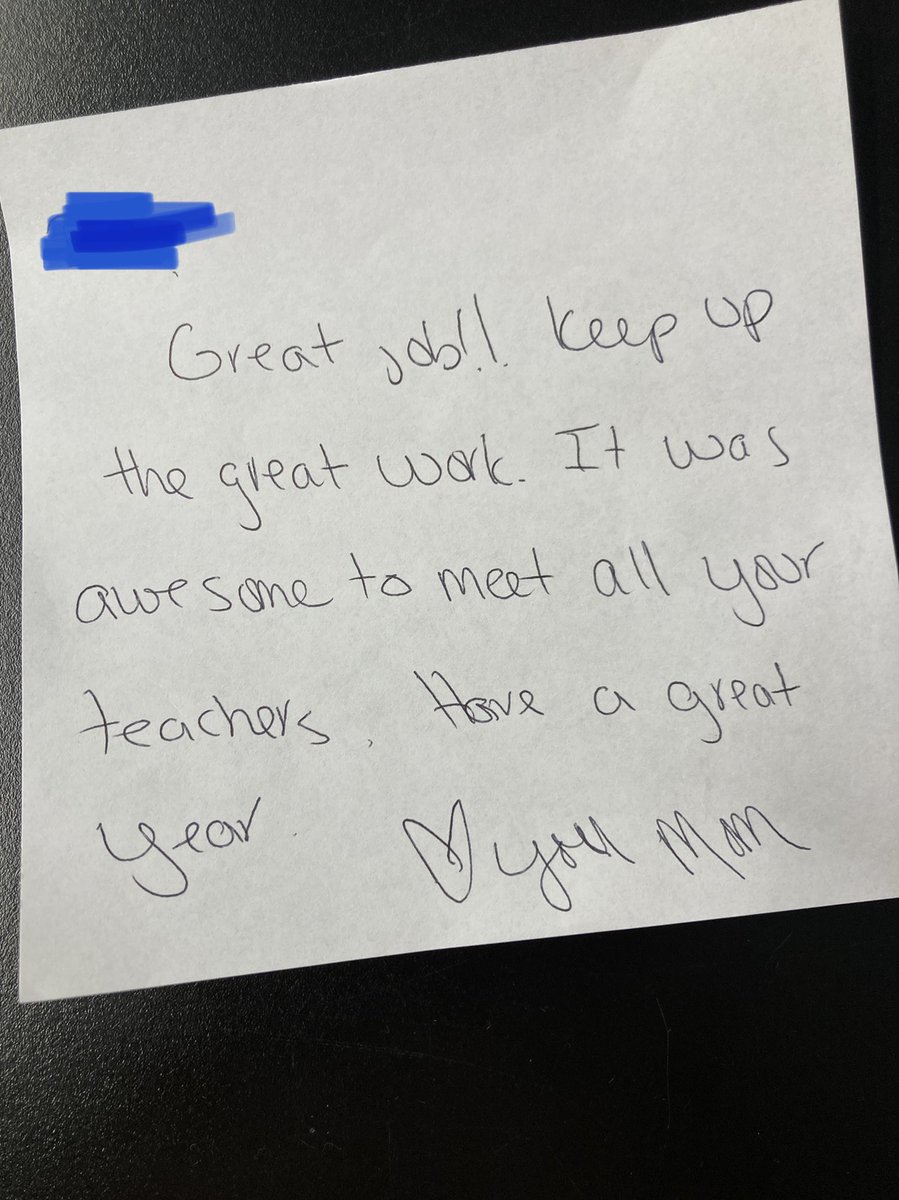 Great job!! keep up
the great work. It was
awesome to meet all your
teachers. Have a great
year. ♡ you Mom